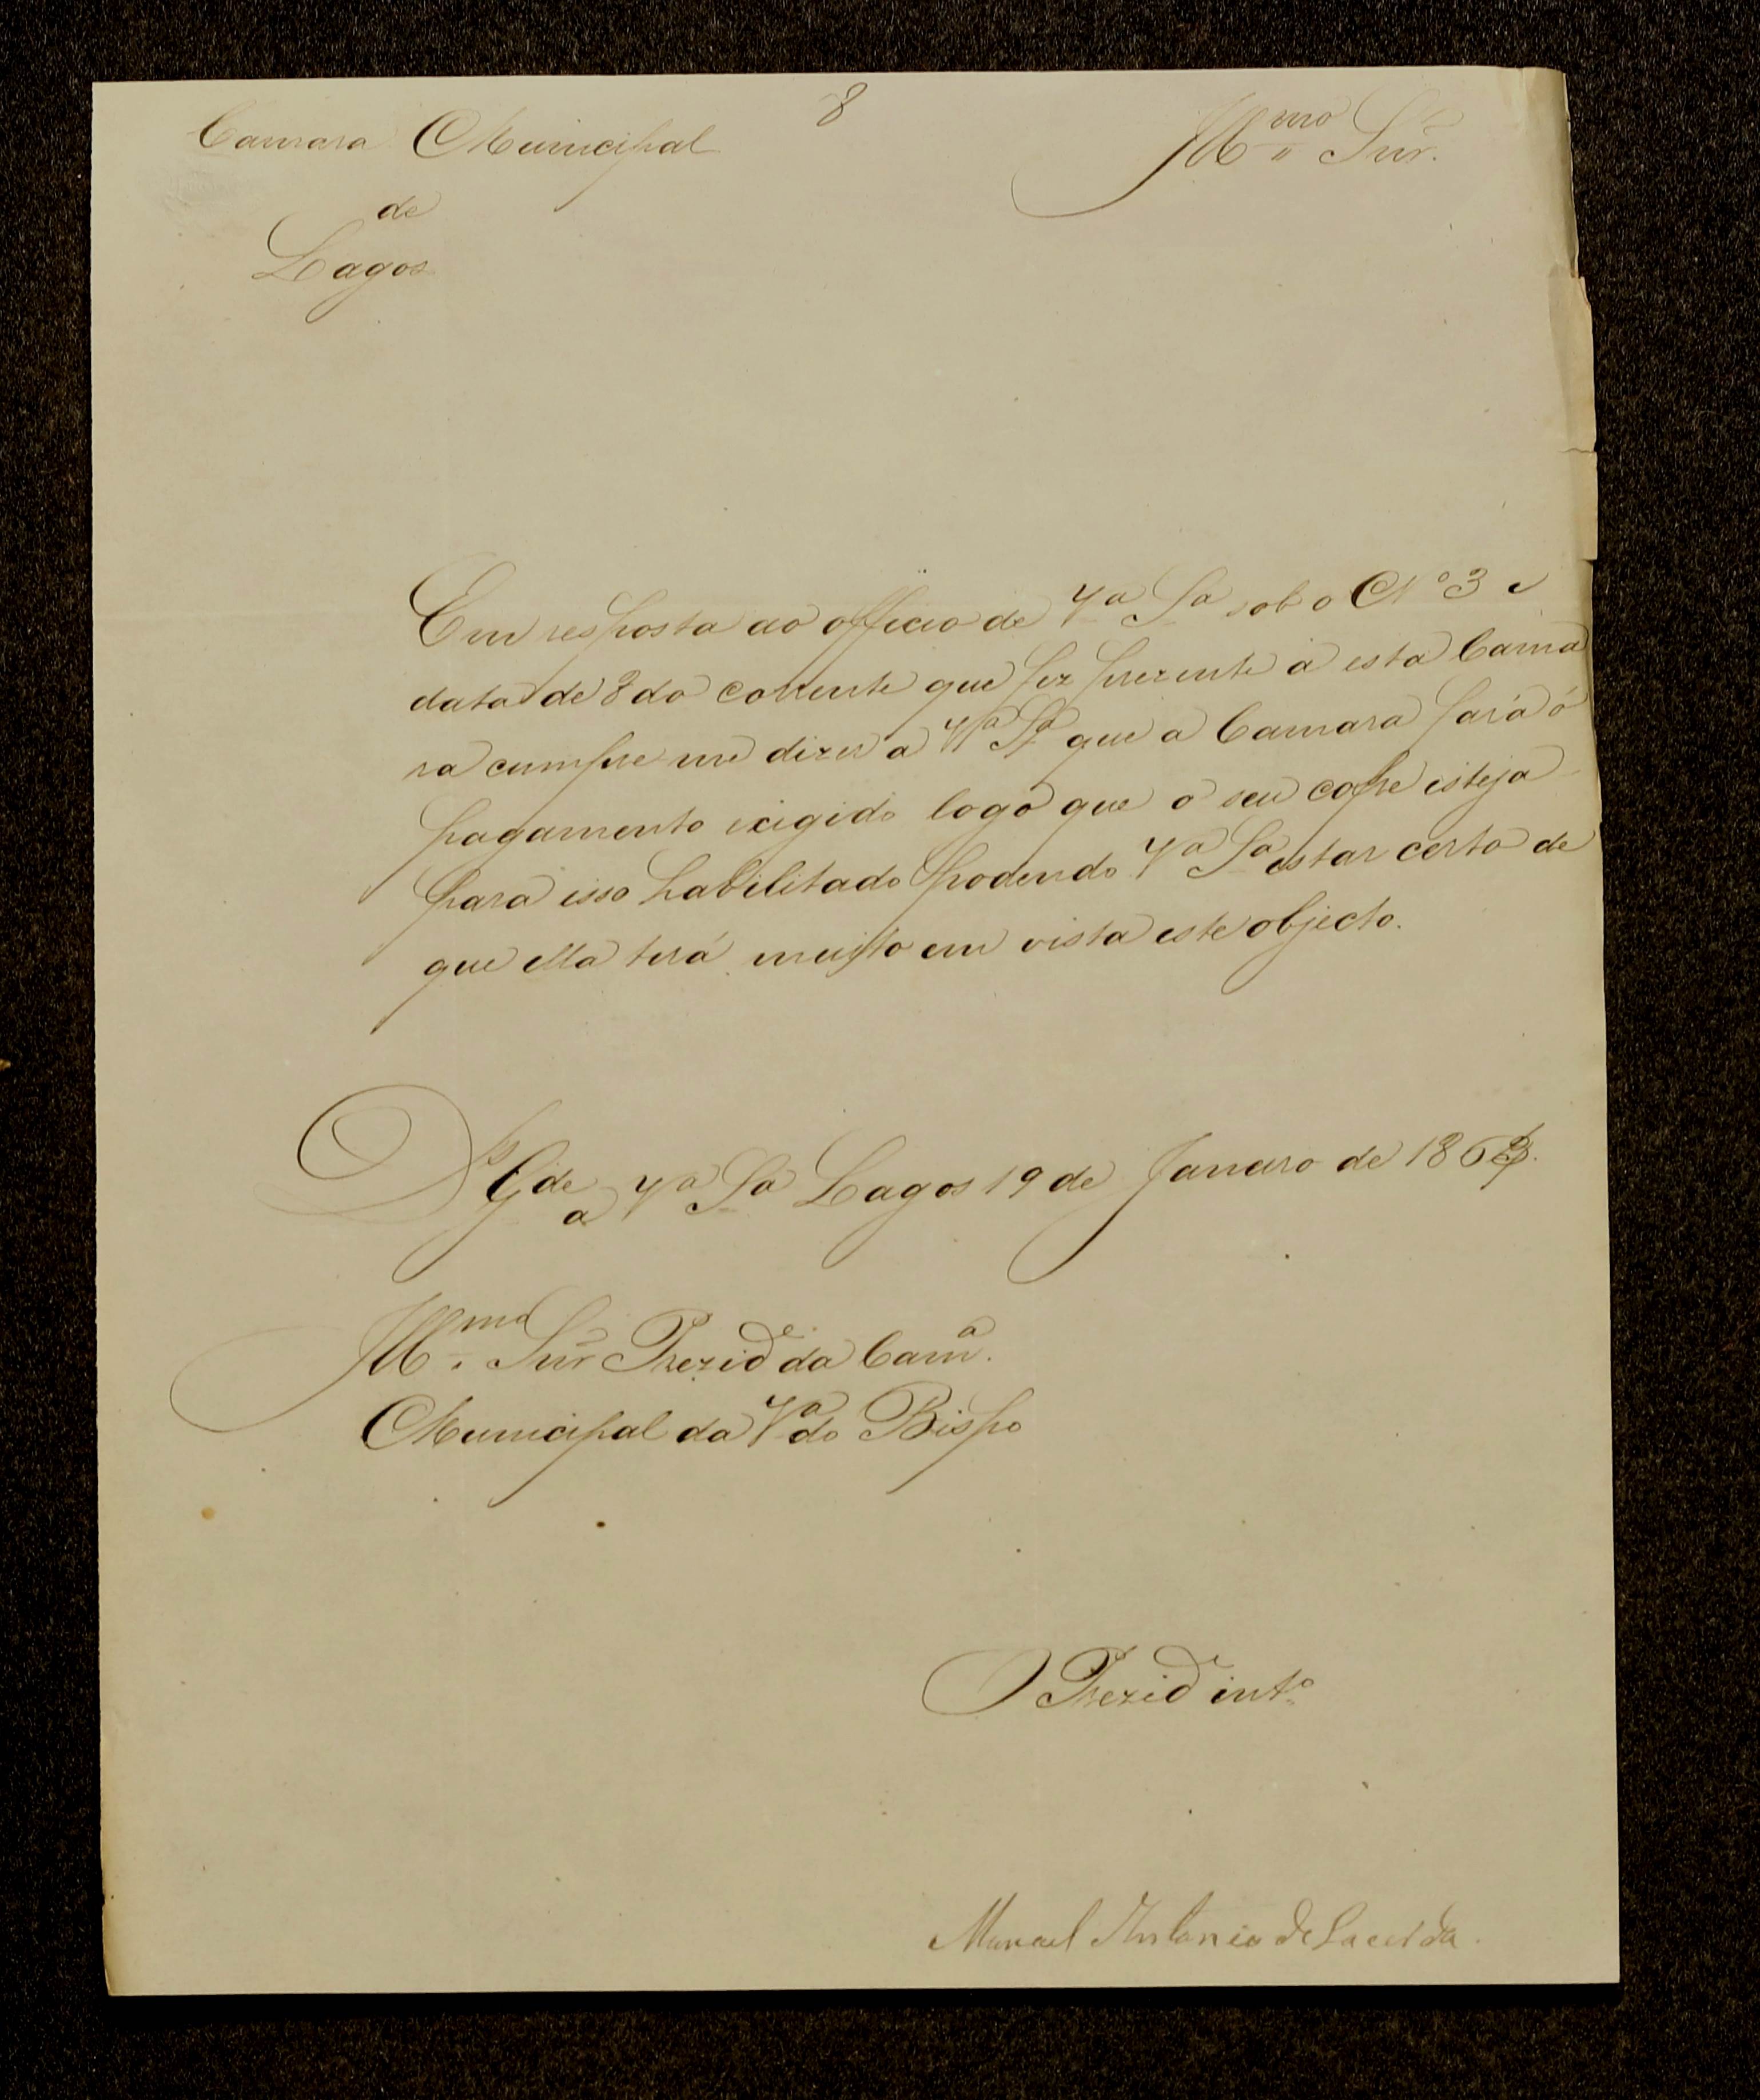 8
Camara Municipal
de
Lagos
Illmo Snr.
Em resposta ao officio de Va Sa sob o No 3 e
data de 8 do corrente que fez prezente a esta Cama
ra cumpre me dizer a Va Sa que a Camara fará o
pagamento exigido logo que o seu cofre esteja
para isso habilitado podendo Va Sa estar certo de
que ella terá muito em vista este objecto.
Ds Gde a Va Sa Lagos 19 de Janeiro de
Illmo Snr Prezide da Cama.
Municipal da Va do Bispo
O Prezide into
Manoel Antonio de Lacerda.